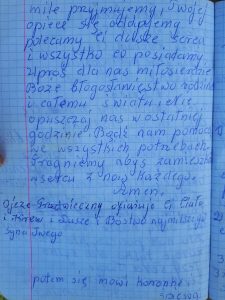 mile przyjmujemy, Twojej
opiece się oddajemy
polecamy Ci dusze serca
i wszystko co posiadamy
Uproś dla nas miłosierdzie
Boże błogosławieństwo rodzinie
i całemu światu, i nie
opuszczaj nas w ostatniej
godzinie. Bądź nam pomocą
we wszystkich potrzebach
Pragniemy abyś zamieszkał
w sercu z nas każdego.
Amen.
Ojcze Przedwieczny ofiaruję Ci Ciało
i Krew i Duszę i Bóstwo najmilszego
Syna Twego
potem się mówi koronkę